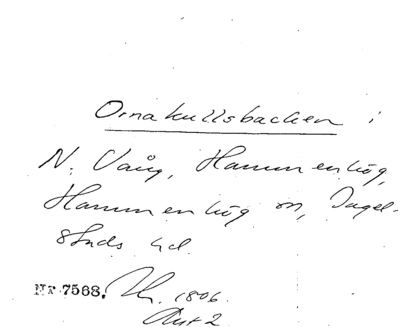 Ornakullsbacken i
N. Vång, Hammenhög,
Hammenhög sn, Ingel-
stads hd.
Nr 7568. 1806.
Akt 2